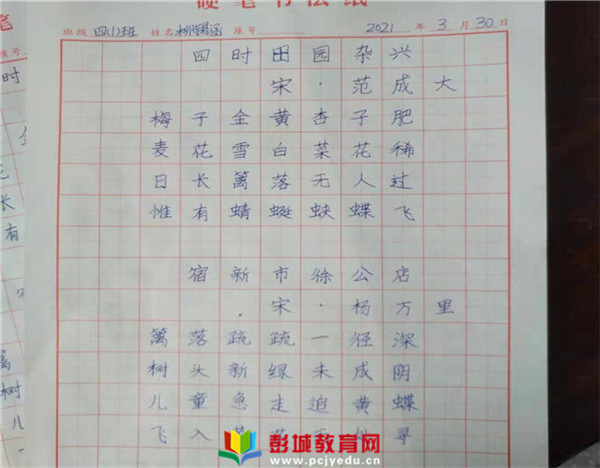 硬笔书法纸
班级 四(1)班 姓名 座号 2021 年 3 月 30 日
四时田园杂兴
宋·范成大
梅子金黄杏子肥
麦花雪白菜花稀
日长篱落无人过
惟有蜻蜓蛱蝶飞
宿新市徐公店
宋·杨万里
篱落疏疏一径深
树头新绿未成阴
儿童急走追黄蝶
飞入 寻
彭城教育网
www.pcjyedu.cn